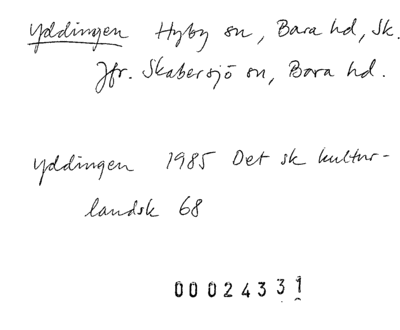 Yddingen Hyby sn, Bara hd, Sk.
Jfr. Skabersjö sn, Bara hd.
Yddingen 1985 Det sk kultur-
landsk 68
00024331